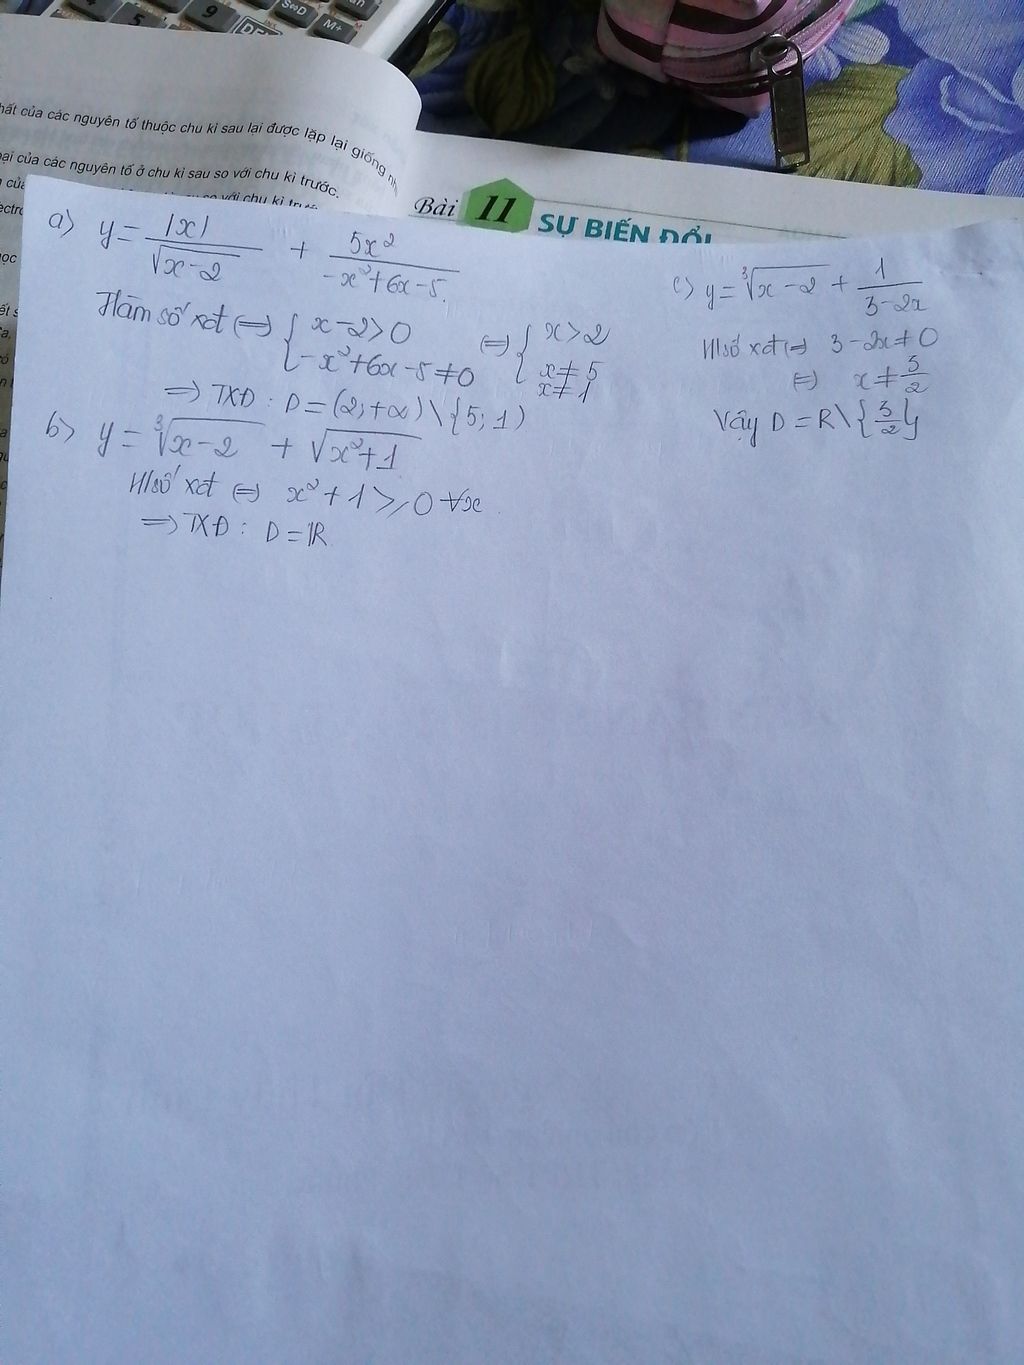 S⇔D
M+
4
5
9
hất của các nguyên tố thuộc chu kì sau lại được lặp lại giống
ại của các nguyên tố ở chu kì sau so với chu kì trước.
so với chu kì
Bài 11 SỰ BIẾN ĐỔI
a) y = |x| / √(x-2) + 5x² / (-x²+6x-5)
Hàm số xđ ⇔ { x-2>0 ⇔ { x>2
-x²+6x-5≠0 x≠5
x≠1
=> TXĐ: D=(2;+∞)\{5;1)
b) y = ³√(x-2) + √(x²+1)
H/số xđ ⇔ x²+1 ≥ 0 ∀x
=> TXĐ: D=ℝ
c) y = ³√(x-2) + 1 / (3-2x)
H/số xđ ⇔ 3-2x≠0
⇔ x≠3/2
Vậy D=R\{3/2}